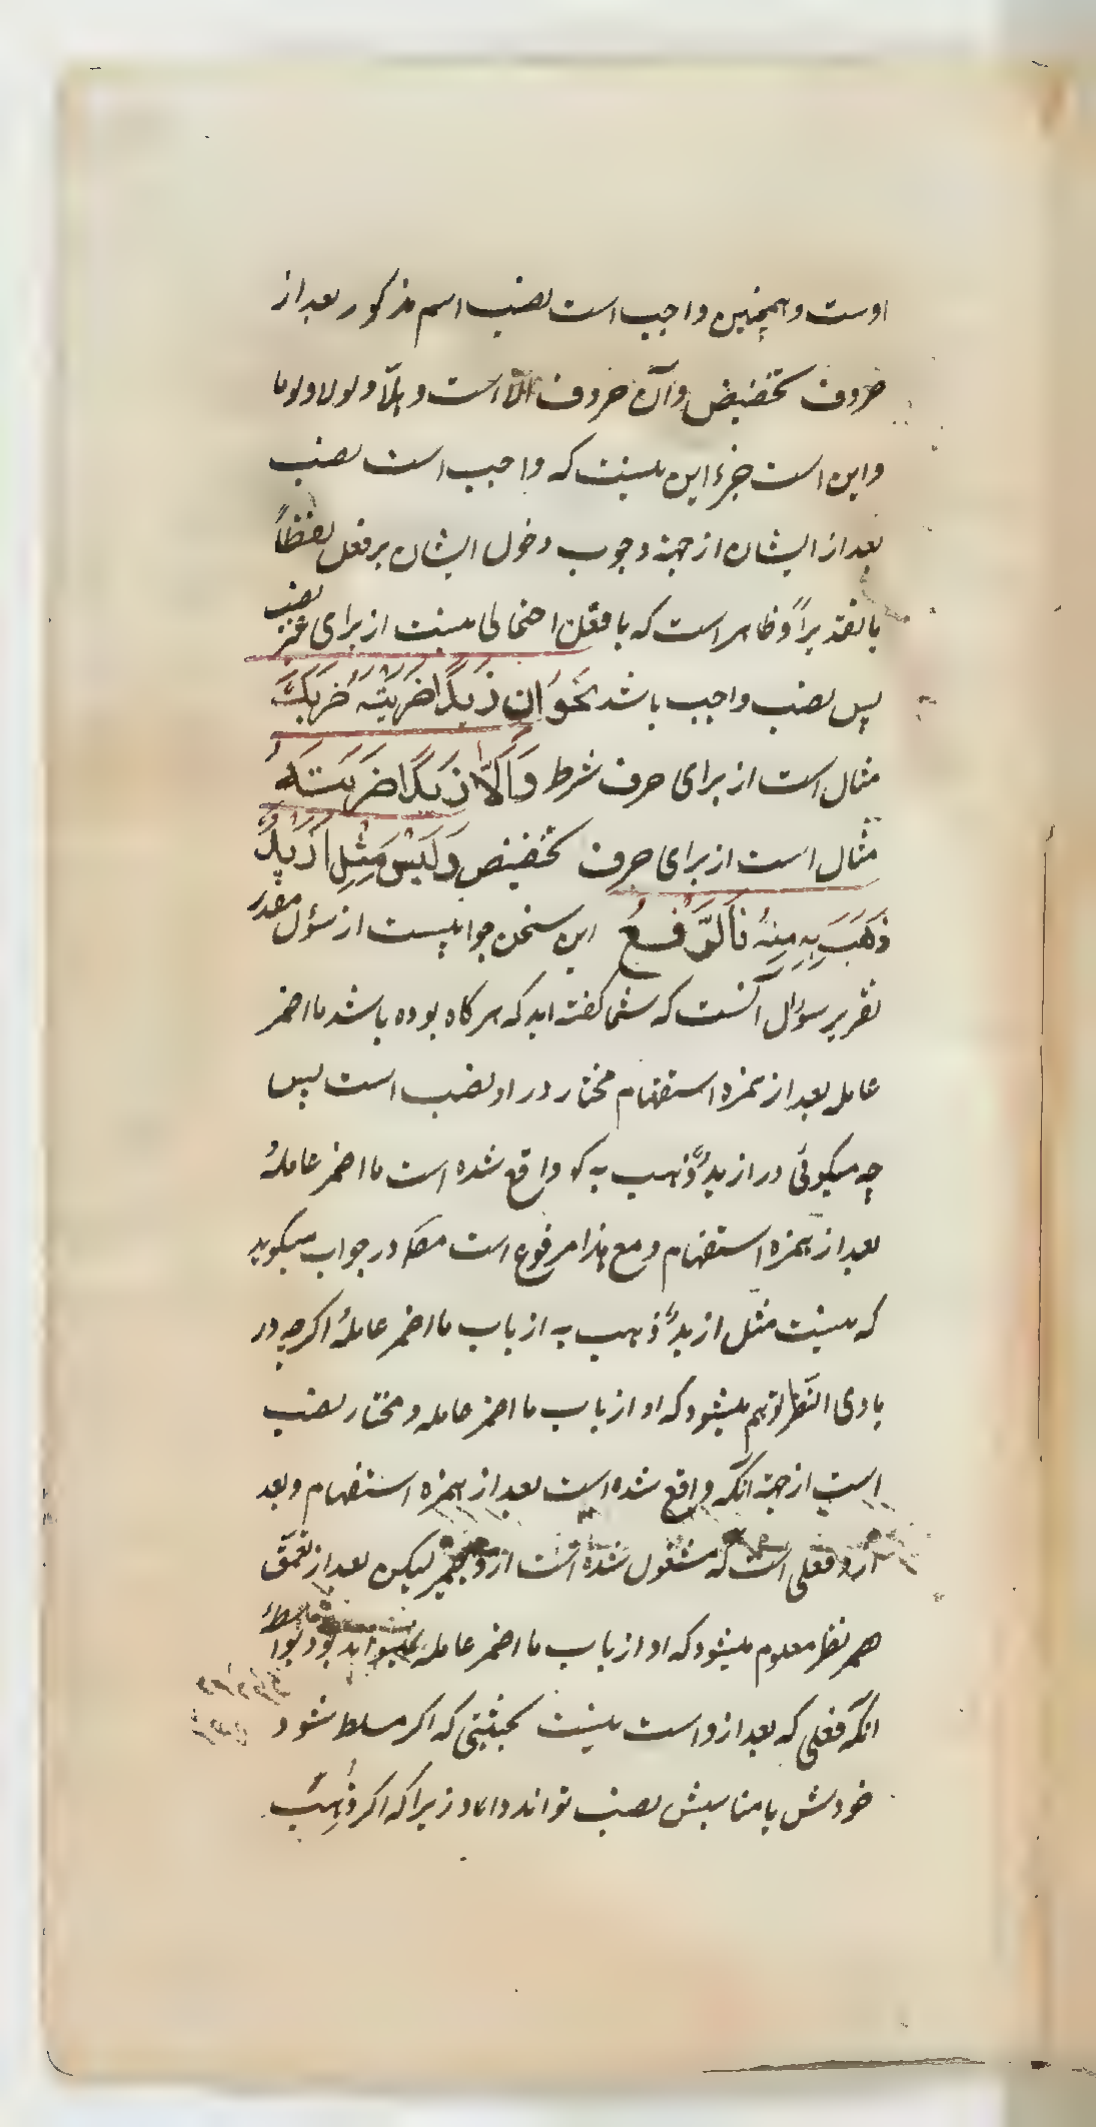 اوست و همچنین واجب است نصب اسم مذکور بعد از
حروف تحضیض و آن حروف الّا است و هلّا و لولا و لوما
و این است جزء این نیست که واجب است نصب
بعد از ایشان از جهة وجوب دخول ایشان بر فعل لفظاً
یا تقدیراً و ظاهر است که با فعل احتمالی نیست از برای غیر نصب
پس نصب واجب باشد نَحوُ اِن زَیدًا ضَرَبتَهُ ضَرَبَکَ
مثال است از برای حرف شرط وَاَلّا زَیدًا ضَرَبتَهُ
مثال است از برای حرف تحضیض وَلَیسَ مِثلُ اَزَیدٌ
ذُهِبَ بِهِ مِنهُ فَالرَّفعُ این سخن جوابیست از سؤل مقدر
تقریر سؤال آنست که شما گفته اید که هرگاه بوده باشد ما اضمر
عامله بعد از همزه استفهام مختار در او نصب است پس
چه میگوئی در ازیدٌ ذهب به که واقع شده است ما اضمر عاملهُ
بعد از همزه استفهام و مع هذا مرفوع است مصه در جواب میگوید
که نیست مثل ازیدٌ ذهب به از باب ما اضمر عاملهُ اگر چه در
بادی النّظر توهم میشود که او از باب ما اضمر عامله و مختار نصب
است از جهة آنکه واقع شده است بعد از همزه استفهام و بعد
ازو فعلی است که مشغول شده است ازو بضمیر لیکن بعد از تعمّق
نظر معلوم میشود که او از باب ما اضمر عامله نمیتواند بود
آنکه فعلی که بعد ازو است نیست بحیثیتی که اگر مسلط شود
خودش یا مناسبش نصب تواند داد او را زیرا که اگر ذُهِبَ